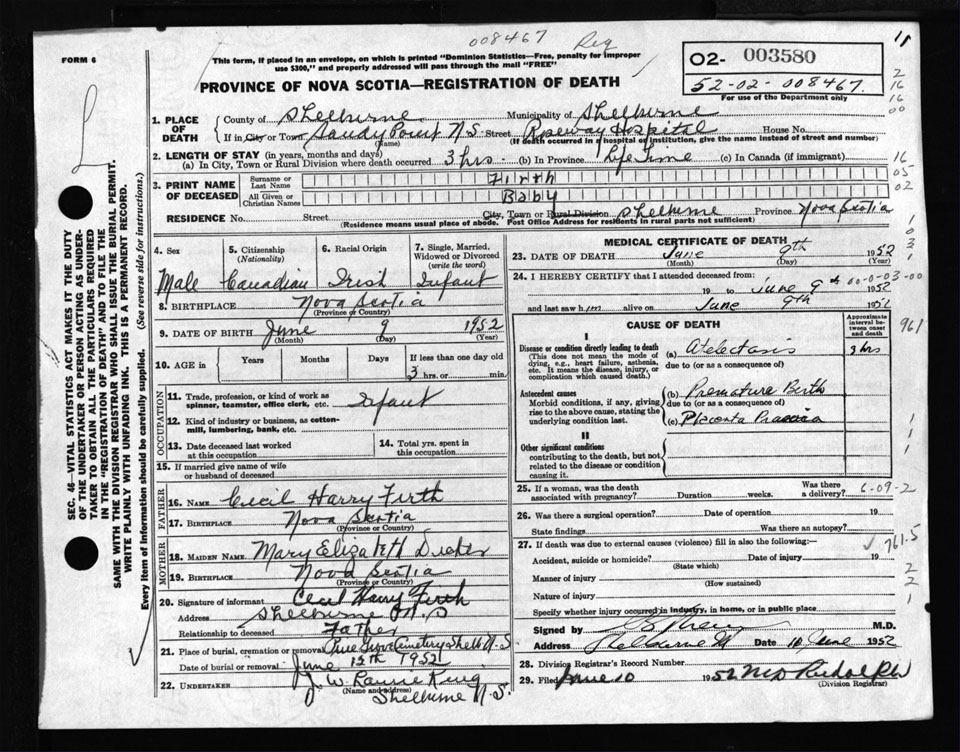 008467 Reg
FORM 6
This form, if placed in an envelope, on which is printed "Dominion Statistics—Free, penalty for improper
use $300," and properly addressed will pass through the mail "FREE"
PROVINCE OF NOVA SCOTIA—REGISTRATION OF DEATH
O2- 003580
52-02-008467
For use of the Department only
11
2
16
16
00
16
05
02
1. PLACE OF DEATH
County of Shelburne Municipality of Shelburne
If in City or Town Sandy Point N.S. Street Roseway Hospital House No.
(Name) (If death occurred in a hospital or institution, give the name instead of street and number)
2. LENGTH OF STAY (in years, months and days)
(a) In City, Town or Rural Division where death occurred 3 hrs. (b) In Province Life Time (c) In Canada (if immigrant)
3. PRINT NAME OF DECEASED
Surname or Last Name Firth
All Given or Christian Names Baby
RESIDENCE No. Street City, Town or Rural Division Shelburne Province Nova Scotia
(Residence means usual place of abode. Post Office Address for residents in rural parts not sufficient)
4. Sex Male
5. Citizenship (Nationality) Canadian
6. Racial Origin Irish
7. Single, Married, Widowed or Divorced (write the word) Infant
8. BIRTHPLACE Nova Scotia
(Province or Country)
9. DATE OF BIRTH June 9 1952
(Month) (Day) (Year)
10. AGE in Years Months Days If less than one day old
3 hrs. or min.
OCCUPATION
11. Trade, profession, or kind of work as spinner, teamster, office clerk, etc. Infant
12. Kind of industry or business, as cotton-mill, lumbering, bank, etc.
13. Date deceased last worked at this occupation
14. Total yrs. spent in this occupation
15. If married give name of wife or husband of deceased
FATHER
16. NAME Cecil Harry Firth
17. BIRTHPLACE Nova Scotia
(Province or Country)
MOTHER
18. MAIDEN NAME Mary Elizabeth
19. BIRTHPLACE Nova Scotia
(Province or Country)
20. Signature of informant Cecil Harry Firth
Address Shelburne N.S
Relationship to deceased Father
21. Place of burial, cremation or removal Pine Grove Cemetery Shelb N.S
Date of burial or removal June 12th 1952
22. UNDERTAKER J. W. King
(Name and address)
Shelburne N.S.
MEDICAL CERTIFICATE OF DEATH
23. DATE OF DEATH June 9th 1952
(Month) (Day) (Year)
24. I HEREBY CERTIFY that I attended deceased from:
19 to June 9th 1952
00-0-03-00
and last saw him alive on June 9th 1952
CAUSE OF DEATH
Approximate interval between onset and death
I
Disease or condition directly leading to death (a) Atelectasis 3 hrs
(This does not mean the mode of dying, e.g., heart failure, asthenia, etc. It means the disease, injury, or complication which caused death.)
due to (or as a consequence of)
Antecedent causes (b) Premature Birth
Morbid conditions, if any, giving rise to the above cause, stating the underlying condition last.
due to (or as a consequence of)
(c) Placenta Praevia
II
Other significant conditions
contributing to the death, but not related to the disease or condition causing it.
25. If a woman, was the death associated with pregnancy? Duration weeks. Was there a delivery? 6-09-2
26. Was there a surgical operation? Date of operation 19
State findings Was there an autopsy?
27. If death was due to external causes (violence) fill in also the following:—
Accident, suicide or homicide? Date of injury 19
(State which)
Manner of injury
(How sustained)
Nature of injury
Specify whether injury occurred in industry, in home, or in public place
Signed by M.D.
Address Shelburne Date 10 June 1952
28. Division Registrar's Record Number
29. Filed June 10 1952
(Division Registrar)
961
761.5
SEC. 46—VITAL STATISTICS ACT MAKES IT THE DUTY
OF THE UNDERTAKER OR PERSON ACTING AS UNDER-
TAKER TO OBTAIN ALL THE PARTICULARS REQUIRED
IN THE "REGISTRATION OF DEATH" AND TO FILE THE
SAME WITH THE DIVISION REGISTRAR WHO SHALL ISSUE THE BURIAL PERMIT.
WRITE PLAINLY WITH UNFADING INK. THIS IS A PERMANENT RECORD.
Every item of information should be carefully supplied. (See reverse side for instructions.)